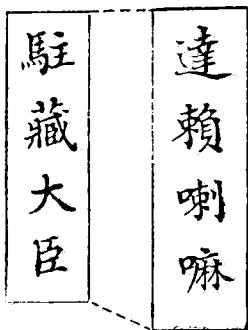 達賴喇嘛
駐藏大臣